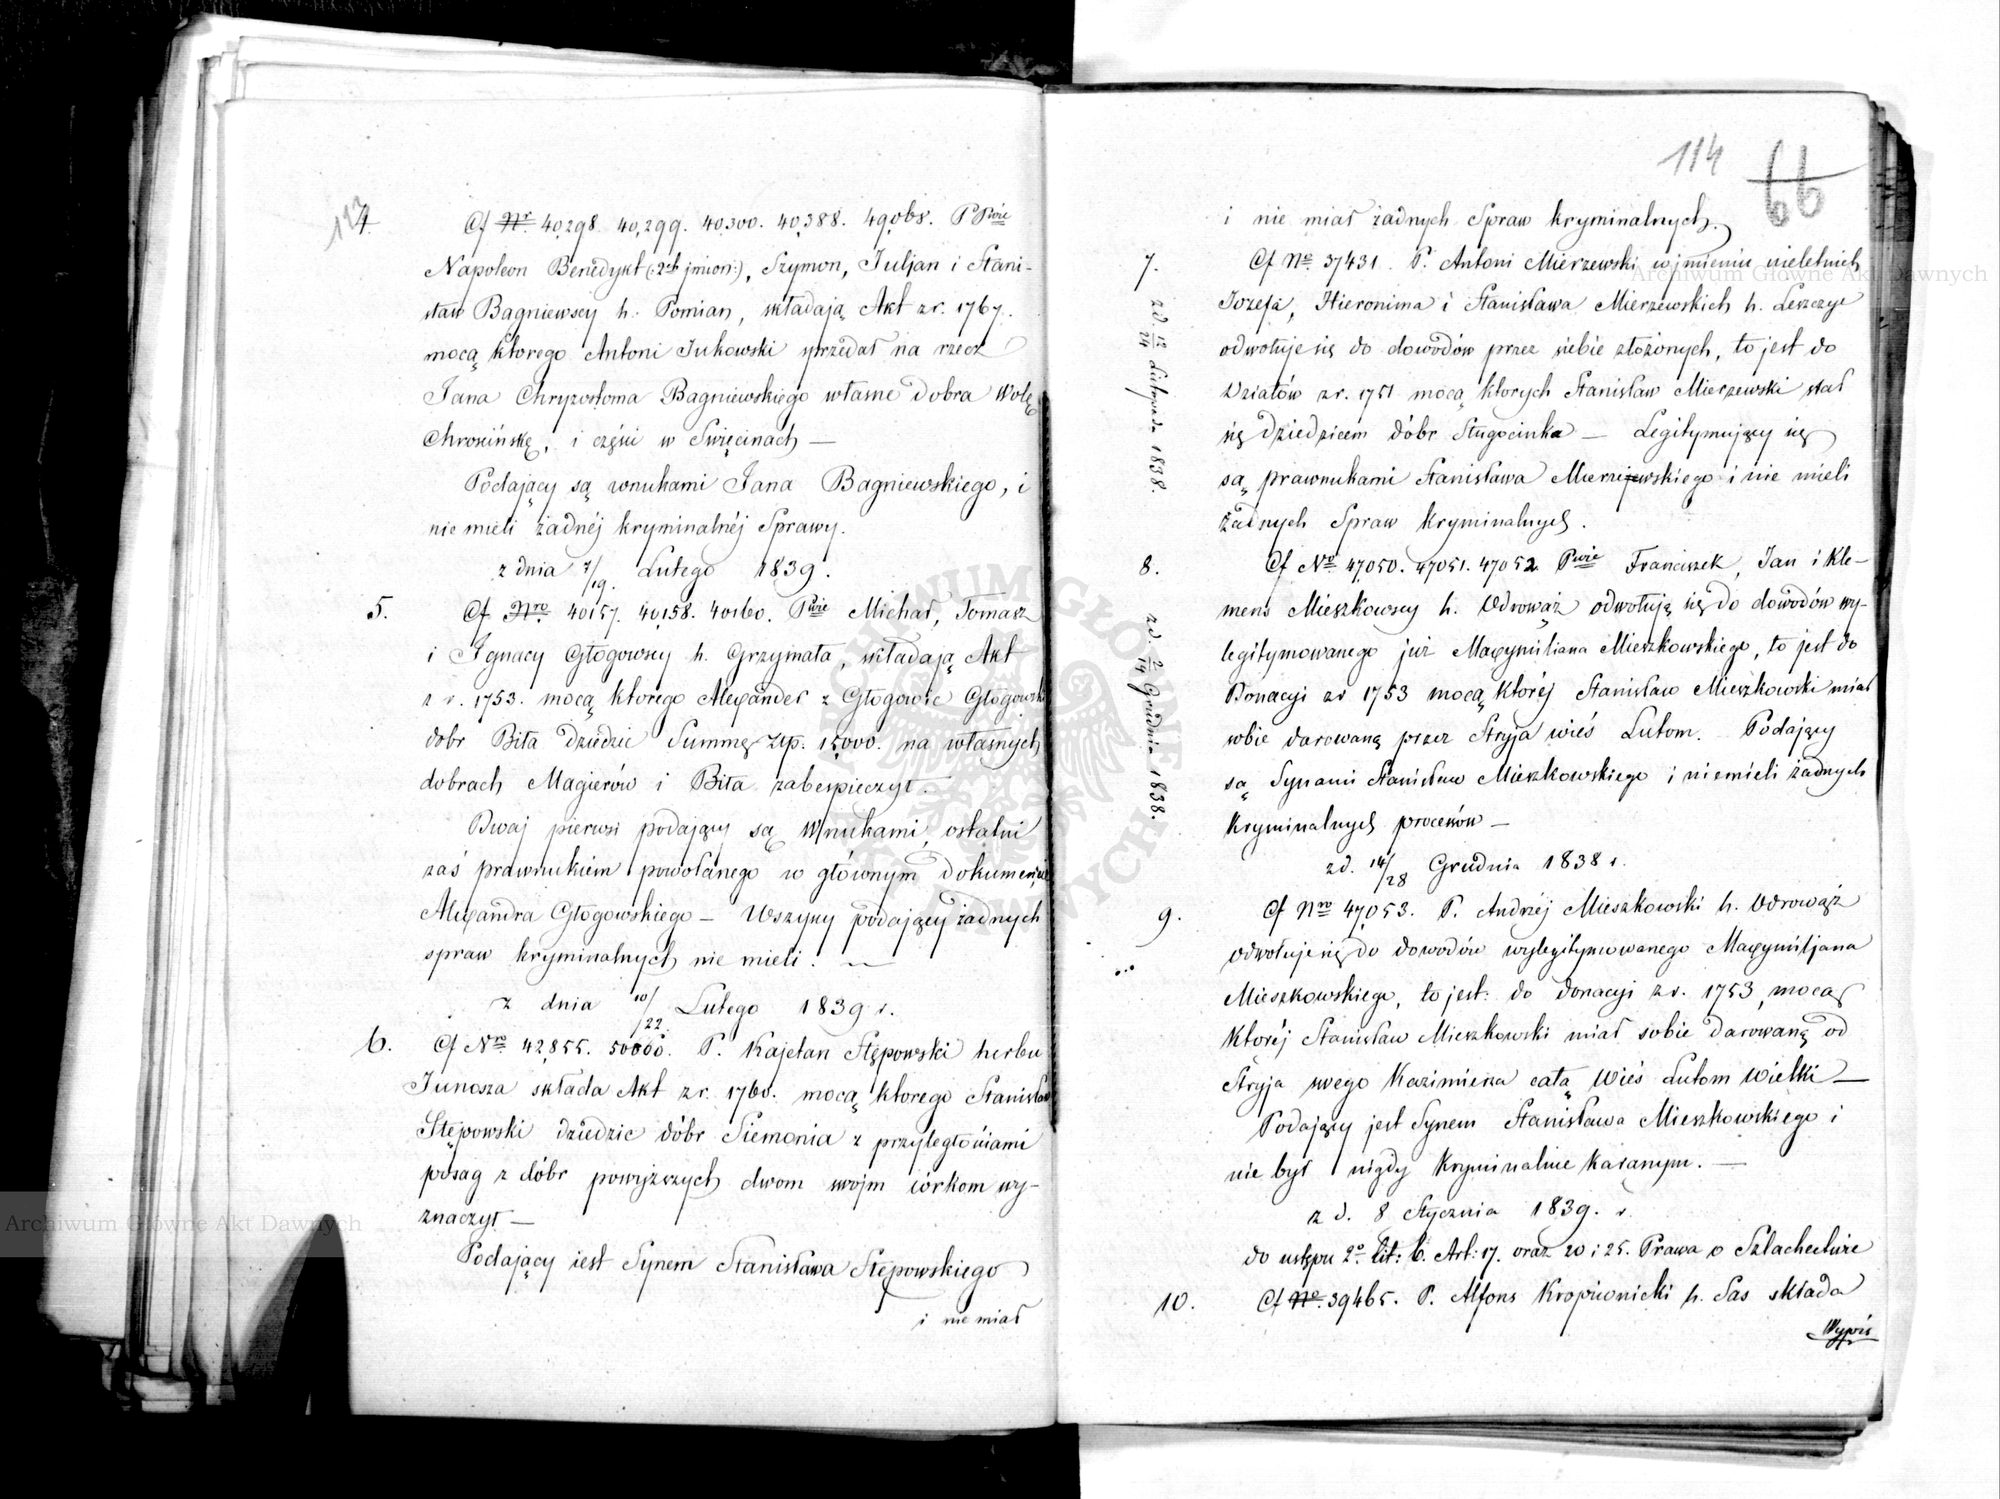 117
4. Cf Nr 40,298 40,299. 40,300. 40,388. 49,068. P Pwie
Napoleon Benedykt (:2ch jmion:), Szymon, Juljan i Stani-
sław Bagniewscy h. Pomian, składają Akt z r. 1767.
mocą ktorego Antoni Jukowski sprzedał na rzecz
Jana Chryzostoma Bagniewskiego własne dobra Wolę
Chrosińskę, i części w Święcinach —
Podający są wnukami Jana Bagniewskiego, i
nie mieli żadnéj kryminalnéj Sprawy.
z dnia 7/19. Lutego 1839.
5. Cf Nro 40157. 40,158. 40160. Pwie Michał, Tomasz
i Ignacy Głogowscy h. Grzymała, składają Akt
z r. 1753. mocą ktorego Alexander z Głogowie Głogowski
dobr Biła dziedzic Summę złp. 15,000. na własnych
dobrach Magierów i Biła zabespieczył.
Dwaj pierwsi podający są wnukami, ostatni
zaś prawnukiem powołanego w głównym dokumencie
Alexandra Głogowskiego — Wszyscy podający żadnych
spraw kryminalnych nie mieli. —
z dnia 10/22. Lutego 1839 r.
6. Cf Nro 42,855. 50000. P. Kajetan Stępowski herbu
Junosza składa Akt z r. 1760. mocą ktorego Stanisław
Stępowski dziedzic dóbr Siemonia z przyległościami
posag z dóbr powyższych dwom swojm córkom wy-
znaczył —
Podający iest Synem Stanisława Stępowskiego
i nie miał
114 66
i nie miał żadnych Spraw kryminalnych.
7. Cf No. 37431. P. Antoni Mierzewski w jmieniu nieletnich
Jozefa, Hieronima i Stanisława Mierzewskich h. Leszczyc
odwołuje się do dowodów przez siebie złożonych, to jest do
Działów z r. 1751 mocą ktorych Stanisław Mierzewski stał
się Dziedzicem dóbr Sługocinka — Legitymujący się
są prawnukami Stanisława Mierzejewskiego i nie mieli
żadnych Spraw kryminalnych.
z d. 12/24 Listopada 1838.
8. Cf Nro 47,050. 47051. 47052 Pwie Franciszek, Jan i Kle-
mens Mieszkowscy h. Odrowąż odwołują się do dowodów wy-
legitymowanego już Maxymiliana Mieszkowskiego, to jest do
Donacyi z r 1753 mocą ktoréj Stanisław Mieszkowski miał
sobie darowaną przez Stryja wieś Lutom. Podający
są Synami Stanisława Mieszkowskiego i nie mieli żadnych
kryminalnych processów —
z d. 2/14 Grudnia 1838.
zd. 14/28 Grudnia 1838 r.
9. Cf Nro 47,053. P. Andrzéj Mieszkowski h. Odrowąż
odwołuje się do dowodów wylegitymowanego Maxymiljana
Mieszkowskiego, to jest: do donacyi z r. 1753, mocą
ktoréj Stanisław Mieszkowski miał sobie darowaną od
Stryja swego Kazimierza całą Wieś Lutom wielki —
Podający jest Synem Stanisława Mieszkowskiego i
nie był nigdy kryminalnie karanym. —
z d. 8 Stycznia 1839. r.
do ustępu 2o lit: b. Art: 17. oraz 20 i 25. Prawa o Szlachectwie
10. Cf No. 39465. P. Alfons Kropiwnicki h. Sas składa
Wypis
Archiwum Główne Akt Dawnych
Archiwum Główne Akt Dawnych
ARCHIWUM GŁÓWNE AKT DAWNYCH